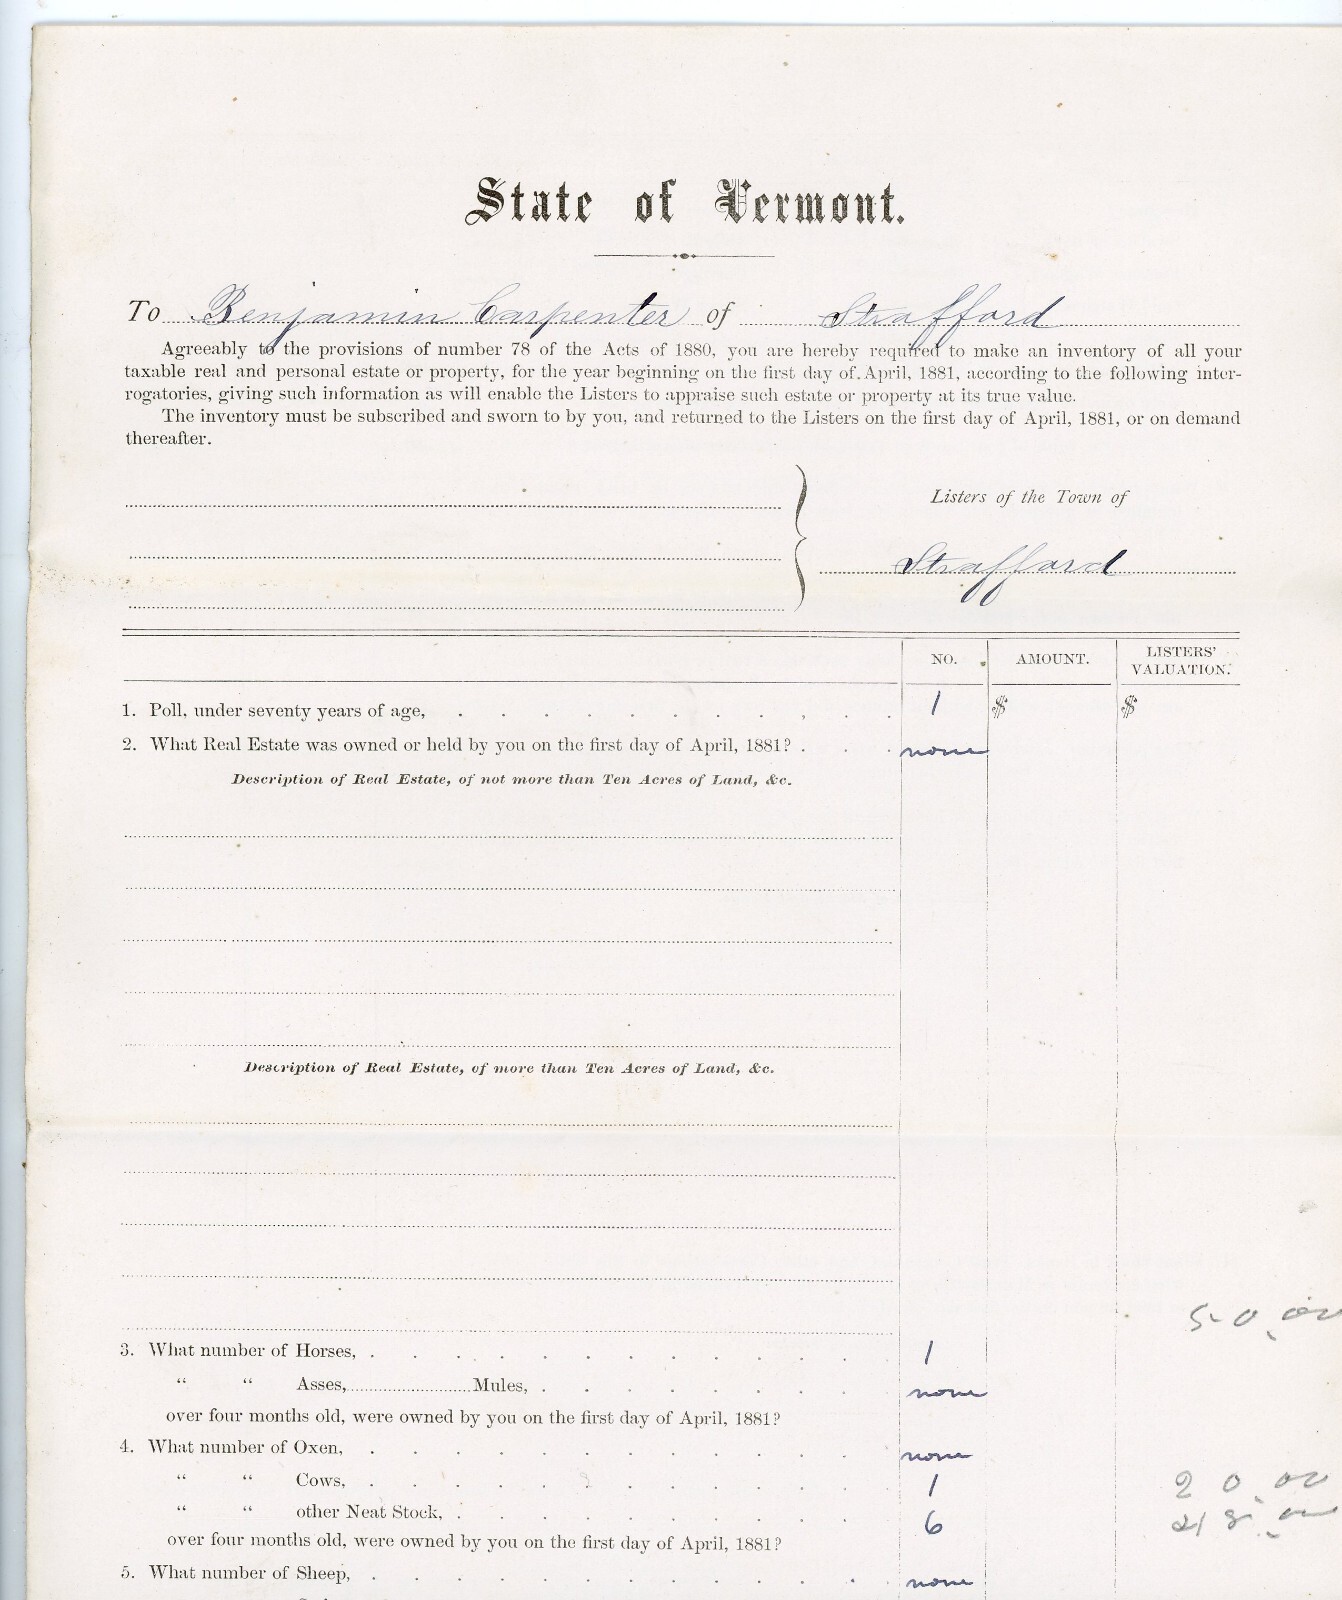 State of Vermont.
To Benjamin Carpenter of Strafford
Agreeably to the provisions of number 78 of the Acts of 1880, you are hereby required to make an inventory of all your
taxable real and personal estate or property, for the year beginning on the first day of April, 1881, according to the following inter-
rogatories, giving such information as will enable the Listers to appraise such estate or property at its true value.
The inventory must be subscribed and sworn to by you, and returned to the Listers on the first day of April, 1881, or on demand
thereafter.
Listers of the Town of
Strafford
NO. AMOUNT. LISTERS' VALUATION.
1. Poll, under seventy years of age, 1 $ $
2. What Real Estate was owned or held by you on the first day of April, 1881? none
Description of Real Estate, of not more than Ten Acres of Land, &c.
Description of Real Estate, of more than Ten Acres of Land, &c.
50.00
3. What number of Horses, 1
" " Asses, Mules, none
over four months old, were owned by you on the first day of April, 1881?
4. What number of Oxen, none
" " Cows, 1 20.00
" " other Neat Stock, 6 48.00
over four months old, were owned by you on the first day of April, 1881?
5. What number of Sheep, none